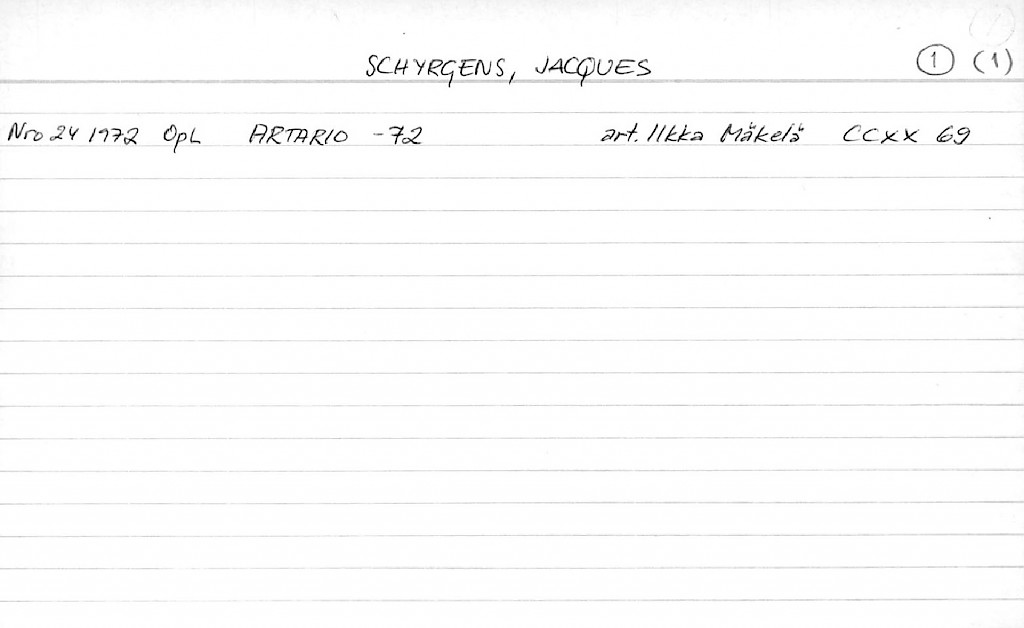 SCHYRGENS, JACQUES 1 (1)
Nro 24 1972 OpL ARTARIO -72 art. Ilkka Mäkelä CCXX 69